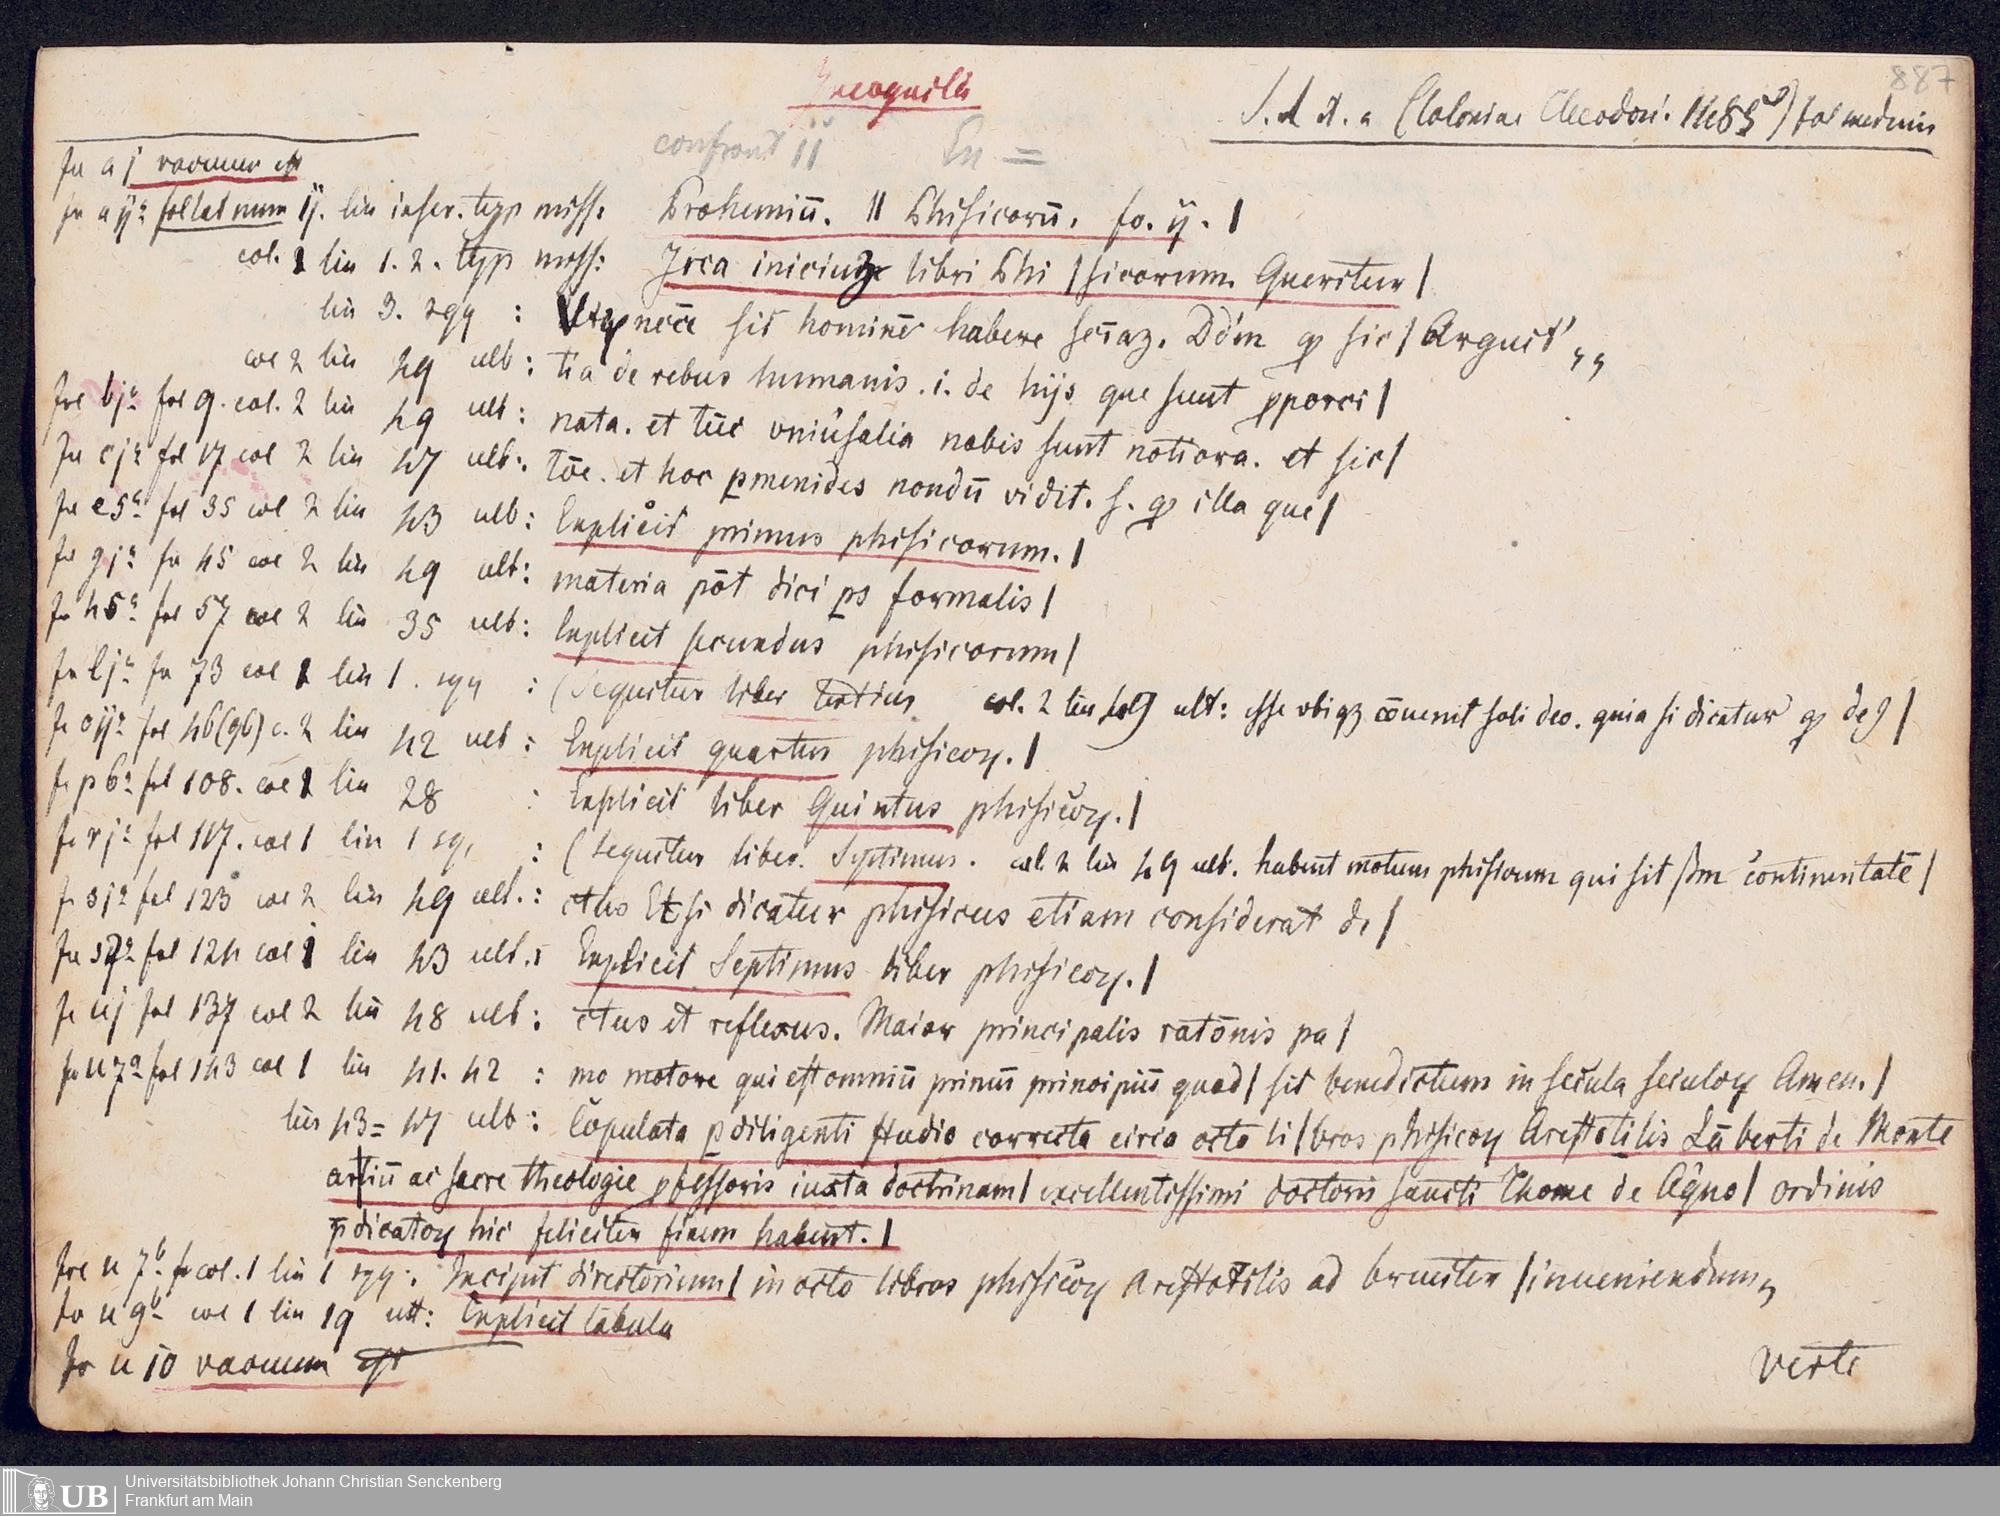 887
Incognita
S. d. n. a (Coloniae Theodori. 1485) fol medium
confront II En =
Fo a j vacuum est
fo a ij a fol lat num ij. lin infer. typ miss: Prohemiū. || Phisicorū. fo. ij. |
col. 1 lin 1. 2. typ miss: Irca iniciuʒ libri Phi | sicorum. Queritur |
lin 3. sqq : Utꝝ necc̄e sit hominē habere sciāʒ. Dd'm ꝙ sic | Arguit'
col 2 lin 49 ult: tia de rebus humanis .i. de hijs que sunt ꝓporci |
Fol b j a fol 9. col. 2 lin 49 ult: nata. et tūc vniūsalia nobis sunt notiora. et sic |
Fo c j a fol 17 col 2 lin 47 ult: tōe. et hoc ꝑmenides nondū vidit. s. ꝙ illa que |
Fo e 5 a fol 35 col 2 lin 43 ult: Explicit primus phisicorum. |
Fo g j a fo 45 col 2 lin 49 ult: materia pōt dici ps formalis |
Fo h 5 a fol 57 col 2 lin 35 ult: Explicit secundus phisicorum |
Fo l j a fo 73 col 1 lin 1. sqq : (Sequitur liber tertius col. 2 lin 49 ult: esse vbiqʒ cōuenit soli deo. quia si dicatur ꝙ de9 |
Fo o ij a fol 46(96) c. 2 lin 42 ult: Explicit quartus phisicoꝝ. |
Fo p 6 a fol 108. col 1 lin 28 : Explicit liber Quintus phisicoꝝ. |
Fo r j a fol 117. col 1 lin 1 sq. : (Sequitur liber Septimus. col. 2 lin 49 ult. habent motum phisicum qui sit ẜm continuitatē |
Fo s j a fol 123 col 2 lin 49 ult.: ctus Et si dicatur phisicus etiam considerat de |
Fo s 7 a fol 124 col 1 lin 43 ult.: Explicit Septimus liber phisicoꝝ. |
Fo u j fol 137 col 2 lin 48 ult: ctus et reflexus. Maior principalis ratōnis pa |
Fo u 7 a fol 143 col 1 lin 41. 42 : mo motore qui est omniū primū principiū quod | sit benedictum in secula seculoꝝ Amen. |
lin 43 = 47 ult: Copulata ꝑ diligenti studio correcta circa octo li | bros phisicoꝝ Arestotilis Lāberti de Monte
artiū ac sacre theologie ꝓfessoris iuxta doctrinam | excellentissimi doctoris sancti Thome de Aquo | ordinis
p̄dicatoꝝ hic feliciter finem habent. |
Fol u 7 b fo col. 1 lin 1 sqq: Incipit directorium | in octo libros phisicoꝝ Arestotilis ad breuiter | inueniendum
Fo u 9 b col 1 lin 19 ult: Explicit tabula
Fo u 10 vacuum est
verte
UB
Universitätsbibliothek Johann Christian Senckenberg
Frankfurt am Main